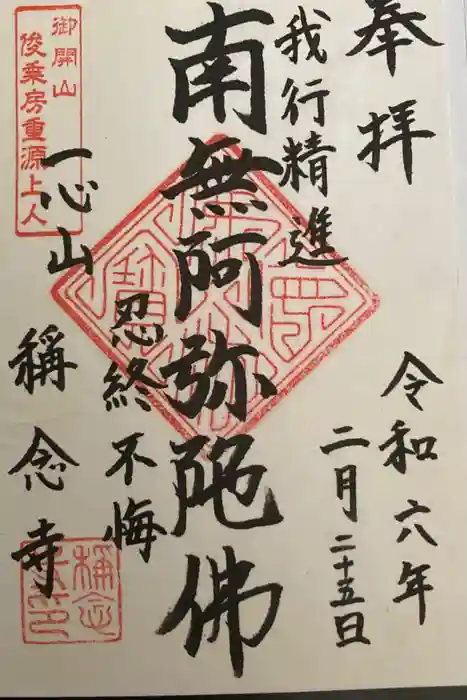 奉拝
令和六年
二月二十五日
我行精進
南無阿弥陀佛
忍終不悔
御開山
俊乗房重源上人
一心山
称念寺